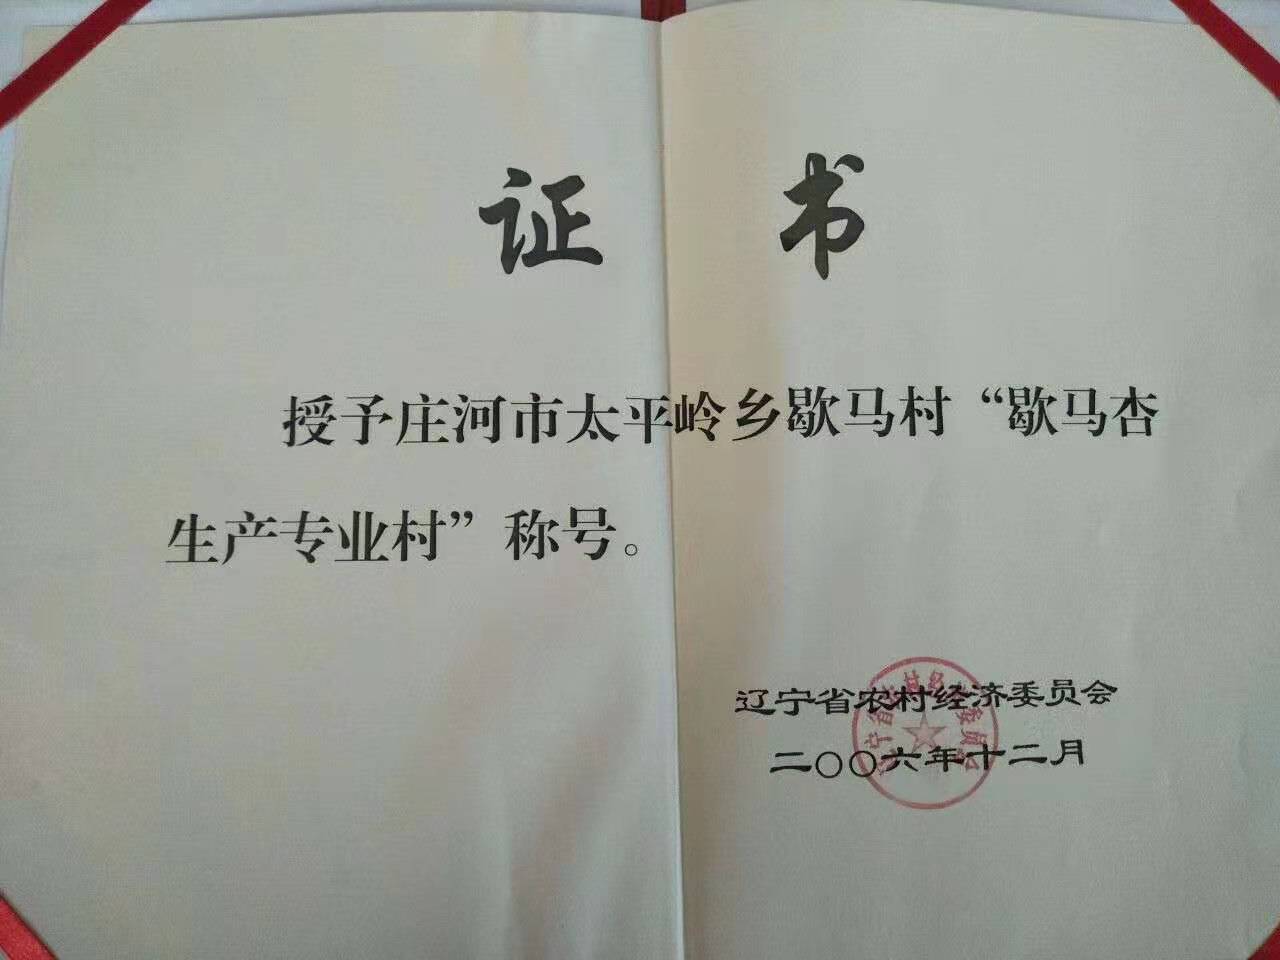 证 书
授予庄河市太平岭乡歇马村“歇马杏
生产专业村”称号。
辽宁省农村经济委员会
二〇〇六年十二月